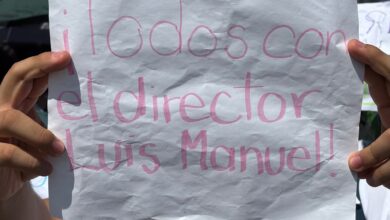 ¡Todos con
el director
Luis Manuel!